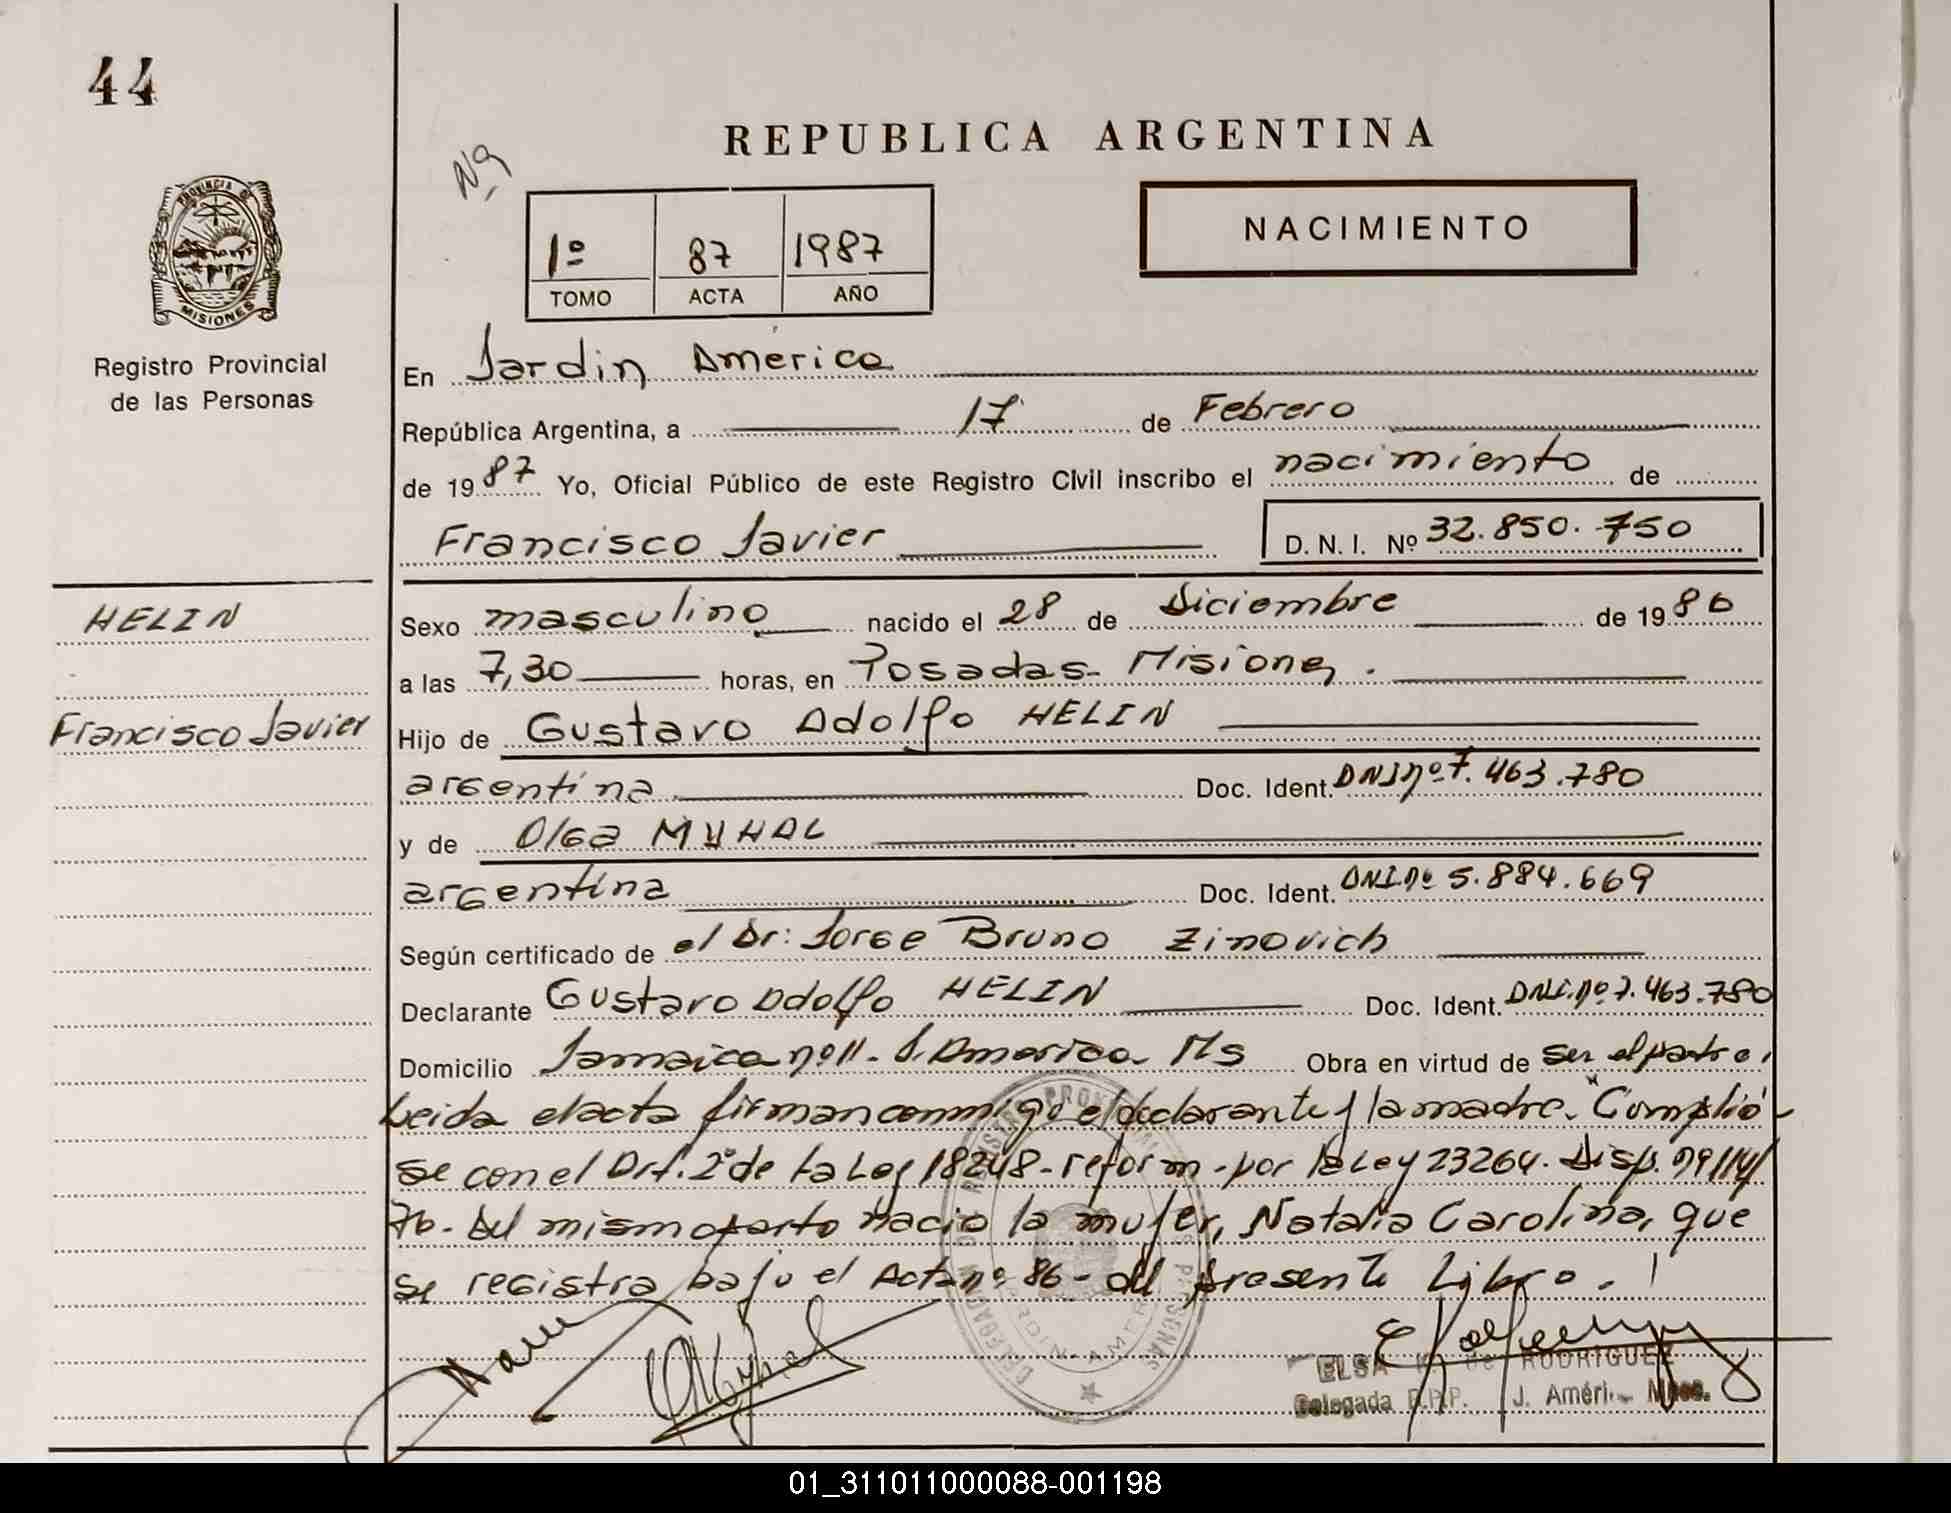 44
REPUBLICA ARGENTINA
Nº
1º 87 1987
TOMO ACTA AÑO
NACIMIENTO
PROVINCIA DE
MISIONES
Registro Provincial
de las Personas
En Jardin América
República Argentina, a 17 de Febrero
de 1987 Yo, Oficial Público de este Registro Civil inscribo el nacimiento de
Francisco Javier D. N. I. Nº 32.850.750
HELIN
Francisco Javier
Sexo masculino nacido el 28 de Diciembre de 1986
a las 7,30 horas, en Posadas - Misiones.
Hijo de Gustavo Adolfo HELIN
argentina Doc. Ident. DNI nº 7.463.780
y de Olga MYHAL
argentina Doc. Ident. DNI.nº 5.884.669
Según certificado de el Dr: Jorge Bruno Zinovich
Declarante Gustavo Adolfo HELIN Doc. Ident. DNI.nº 7.463.780
Domicilio Jamaica nº 11 - J. America Ms Obra en virtud de ser el padre,
Leida el acta firman conmigo el declarante y la madre. "Cumplió
se con el Art. 2º de la Ley 18248 - reform - por la Ley 23264. Disp. nº 114/
76 - Del mismo parto nacio la mujer, Natalia Carolina, que
se registra bajo el Acta nº 86 - del presente Libro.
ELSA de RODRIGUEZ
Delegada R.P.P. J. Améri. Mnes.
01_311011000088-001198